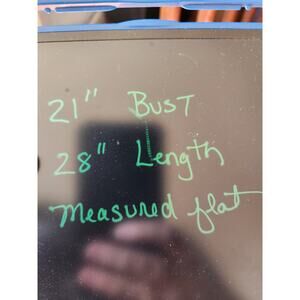 21" Bust
28" Length
measured flat